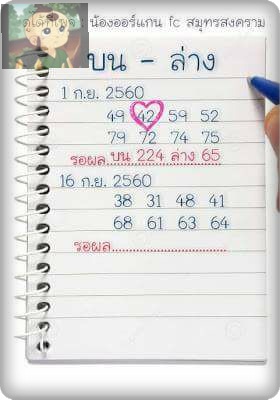 น้องออร์แกน fc สมุทรสงคราม
บน - ล่าง
1 ก.ย. 2560
49 42 59 52
79 72 74 75
รอผล บน 224 ล่าง 65
16 ก.ย. 2560
38 31 48 41
68 61 63 64
รอผล..............................